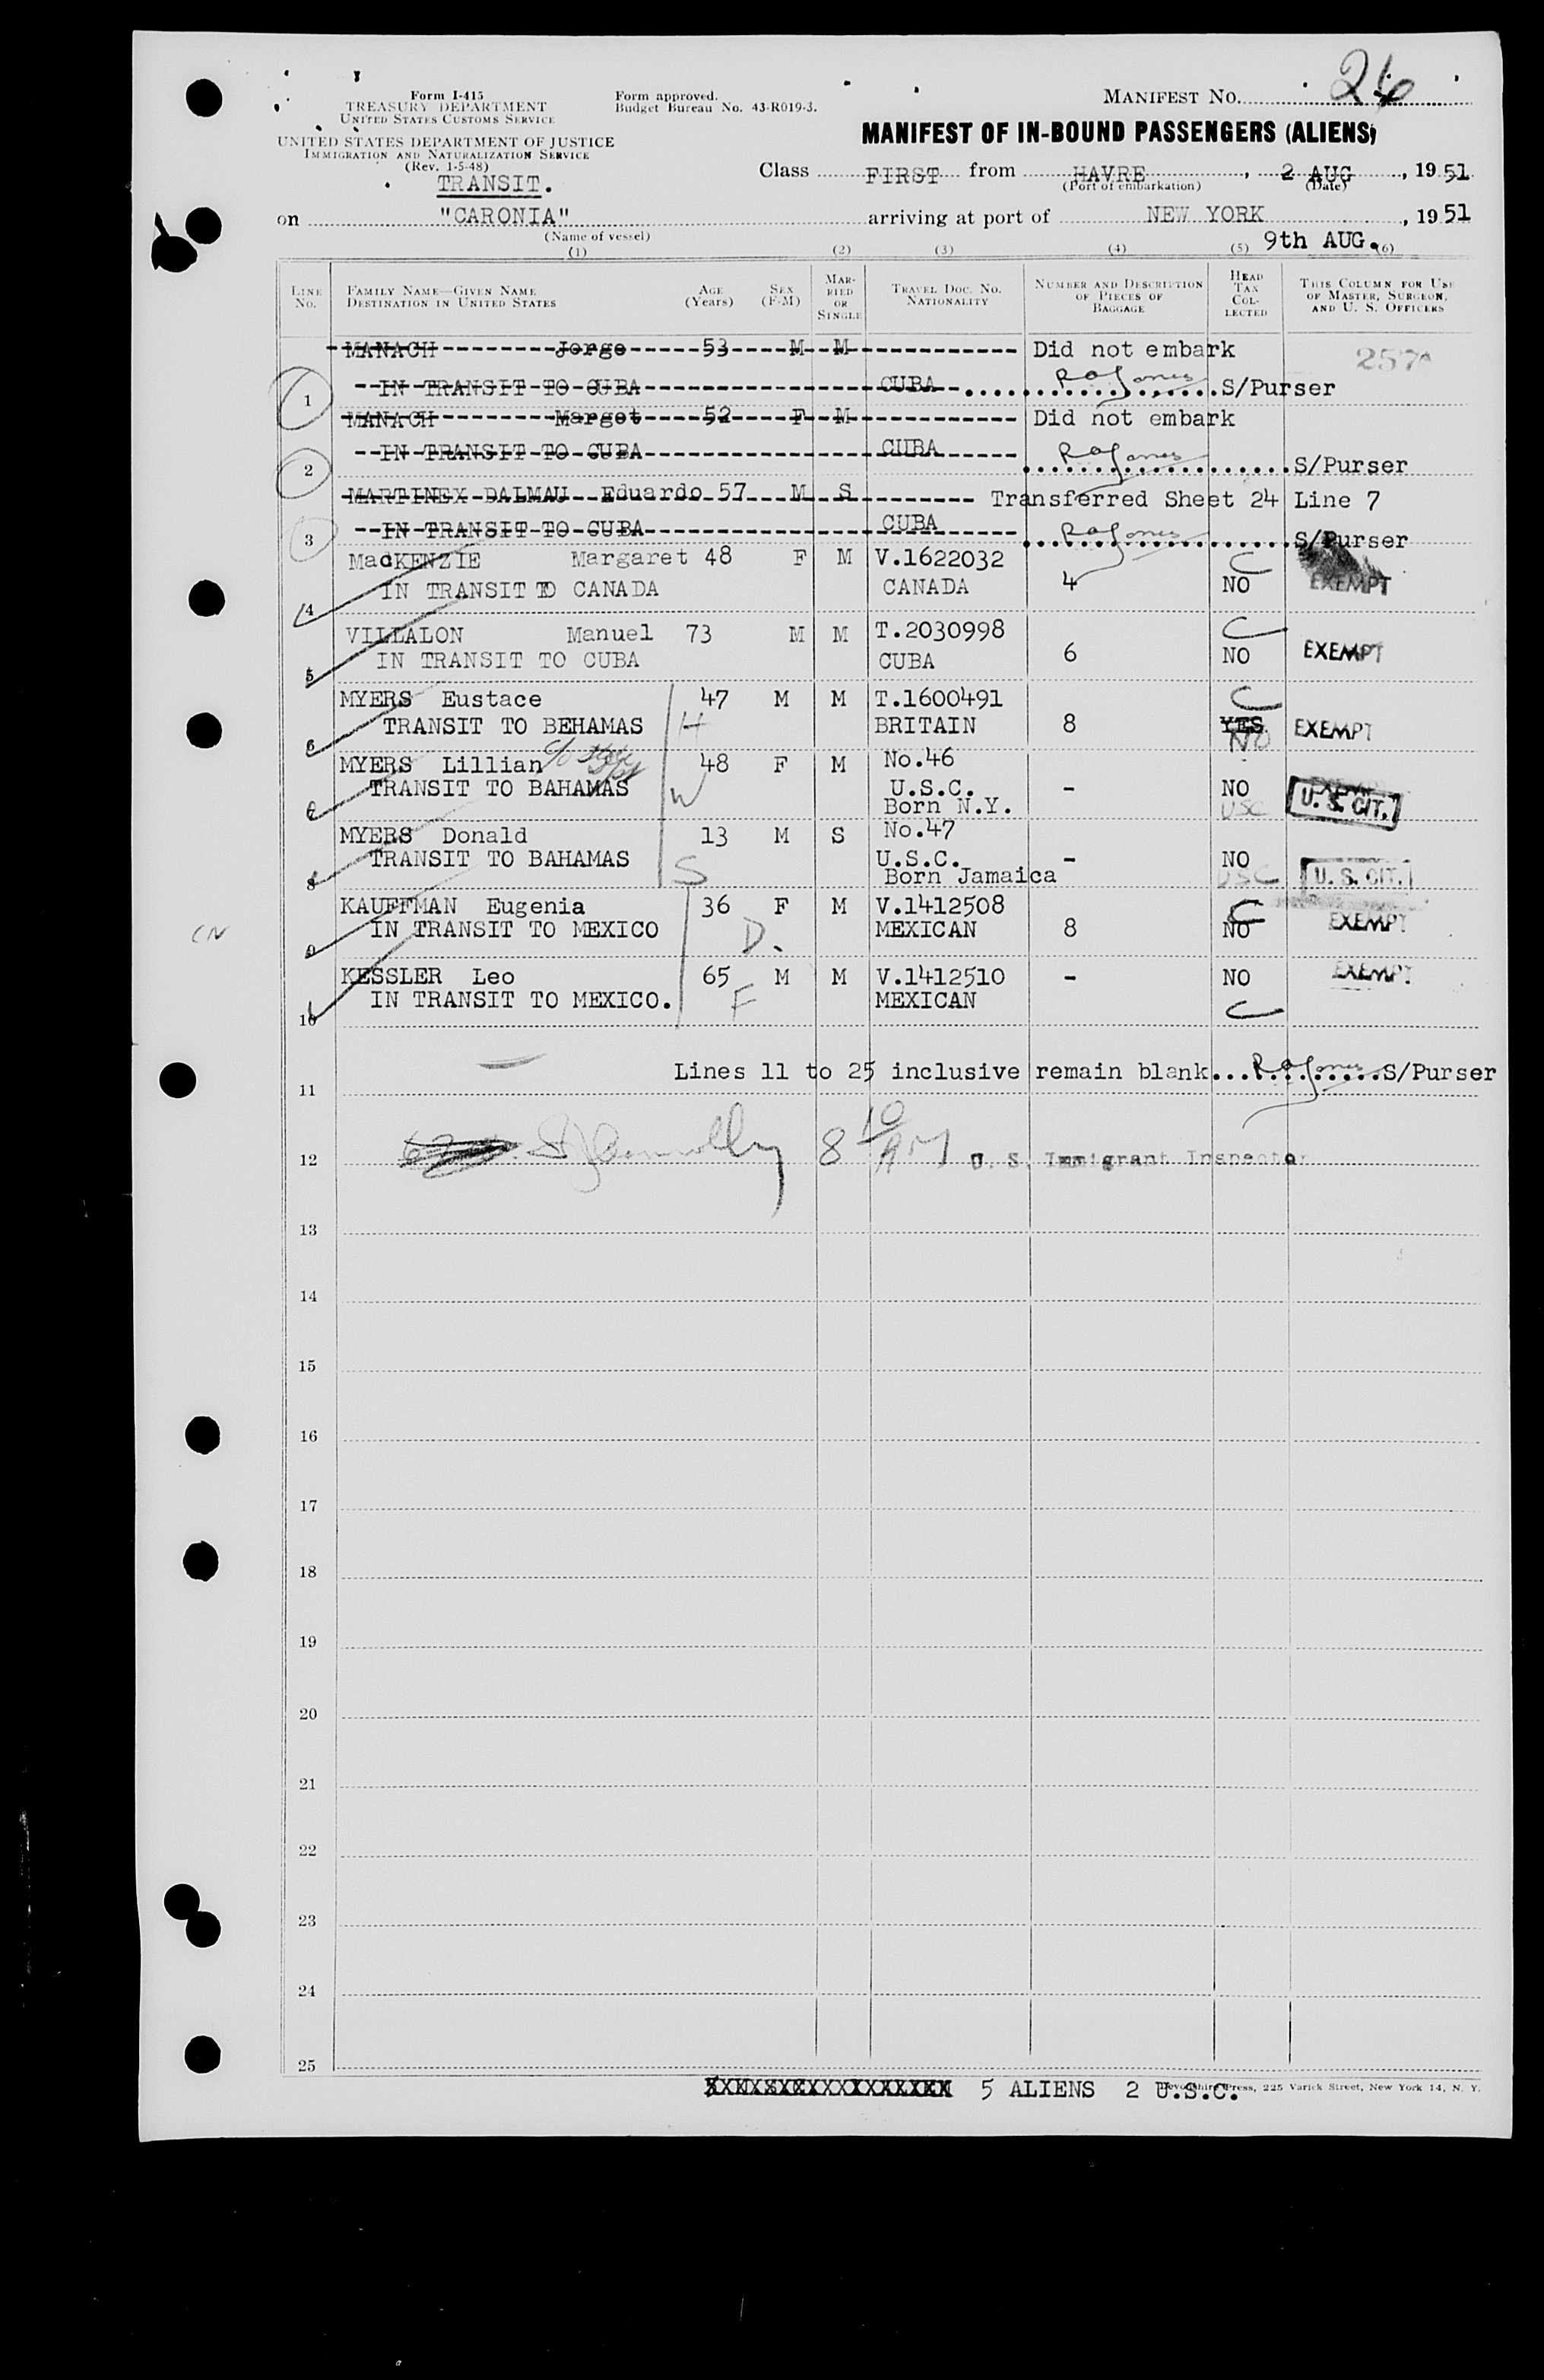 Form I-415
TREASURY DEPARTMENT
UNITED STATES CUSTOMS SERVICE
UNITED STATES DEPARTMENT OF JUSTICE
IMMIGRATION AND NATURALIZATION SERVICE
(Rev. 1-5-48)
Form approved.
Budget Bureau No. 43-R019-3.
MANIFEST NO. 26
MANIFEST OF IN-BOUND PASSENGERS (ALIENS)
TRANSIT.
Class FIRST from HAVRE, 2 AUG, 1951
(Port of embarkation) (Date)
on "CARONIA" arriving at port of NEW YORK, 1951
(Name of vessel) 9th AUG.
(1) (2) (3) (4) (5) (6)
LINE NO.
FAMILY NAME—GIVEN NAME
DESTINATION IN UNITED STATES
AGE (Years)
SEX (F-M)
MARRIED OR SINGLE
TRAVEL DOC. NO. NATIONALITY
NUMBER AND DESCRIPTION OF PIECES OF BAGGAGE
HEAD TAX COLLECTED
THIS COLUMN FOR USE OF MASTER, SURGEON, AND U. S. OFFICERS
MANACH Jorge 53 M M Did not embark
1 IN TRANSIT TO CUBA CUBA RAJones S/Purser
MANACH Margot 52 F M Did not embark
2 IN TRANSIT TO CUBA CUBA RAJones S/Purser
MARTINEX DALMAU Eduardo 57 M S Transferred Sheet 24 Line 7
3 IN TRANSIT TO CUBA CUBA RAJones S/Purser
MacKENZIE Margaret 48 F M V.1622032 C
4 IN TRANSIT TO CANADA CANADA 4 NO EXEMPT
VILLALON Manuel 73 M M T.2030998 C
5 IN TRANSIT TO CUBA CUBA 6 NO EXEMPT
MYERS Eustace 47 M M T.1600491 C
6 TRANSIT TO BEHAMAS H BRITAIN 8 YES NO EXEMPT
MYERS Lillian 48 F M No.46
7 TRANSIT TO BAHAMAS W U.S.C. - NO
Born N.Y. USC U. S. CIT.
MYERS Donald 13 M S No.47
8 TRANSIT TO BAHAMAS S U.S.C. - NO
Born Jamaica USC U. S. CIT.
KAUFFMAN Eugenia 36 F M V.1412508 C
9 IN TRANSIT TO MEXICO D. MEXICAN 8 NO EXEMPT
KESSLER Leo 65 M M V.1412510 - NO EXEMPT
10 IN TRANSIT TO MEXICO. F MEXICAN C
11 Lines 11 to 25 inclusive remain blank RAJones S/Purser
12 8 10 AM U. S. Immigrant Inspector
13
14
15
16
17
18
19
20
21
22
23
24
25
5 ALIENS 2 U.S.C. Press, 225 Varick Street, New York 14, N. Y.